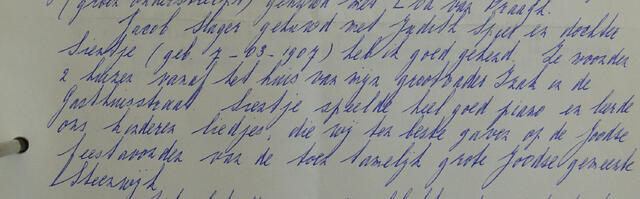 (groen onderstreept) gehuwd met Eva van Kraagh.
Jacob Slager gehuwd met Judith Spier en dochter
Sientje (geb. 7-03-1907) heb ik goed gekend. Ze woonden
2 huizen vanaf het huis van mijn grootvader Izak in de
Gasthuisstraat Sientje speelde heel goed piano en leerde
ons kinderen liedjes, die wij ten beste gaven op de Joodse
feestavonden van de toen tamelijk grote Joodse gemeente
Steenwijk.